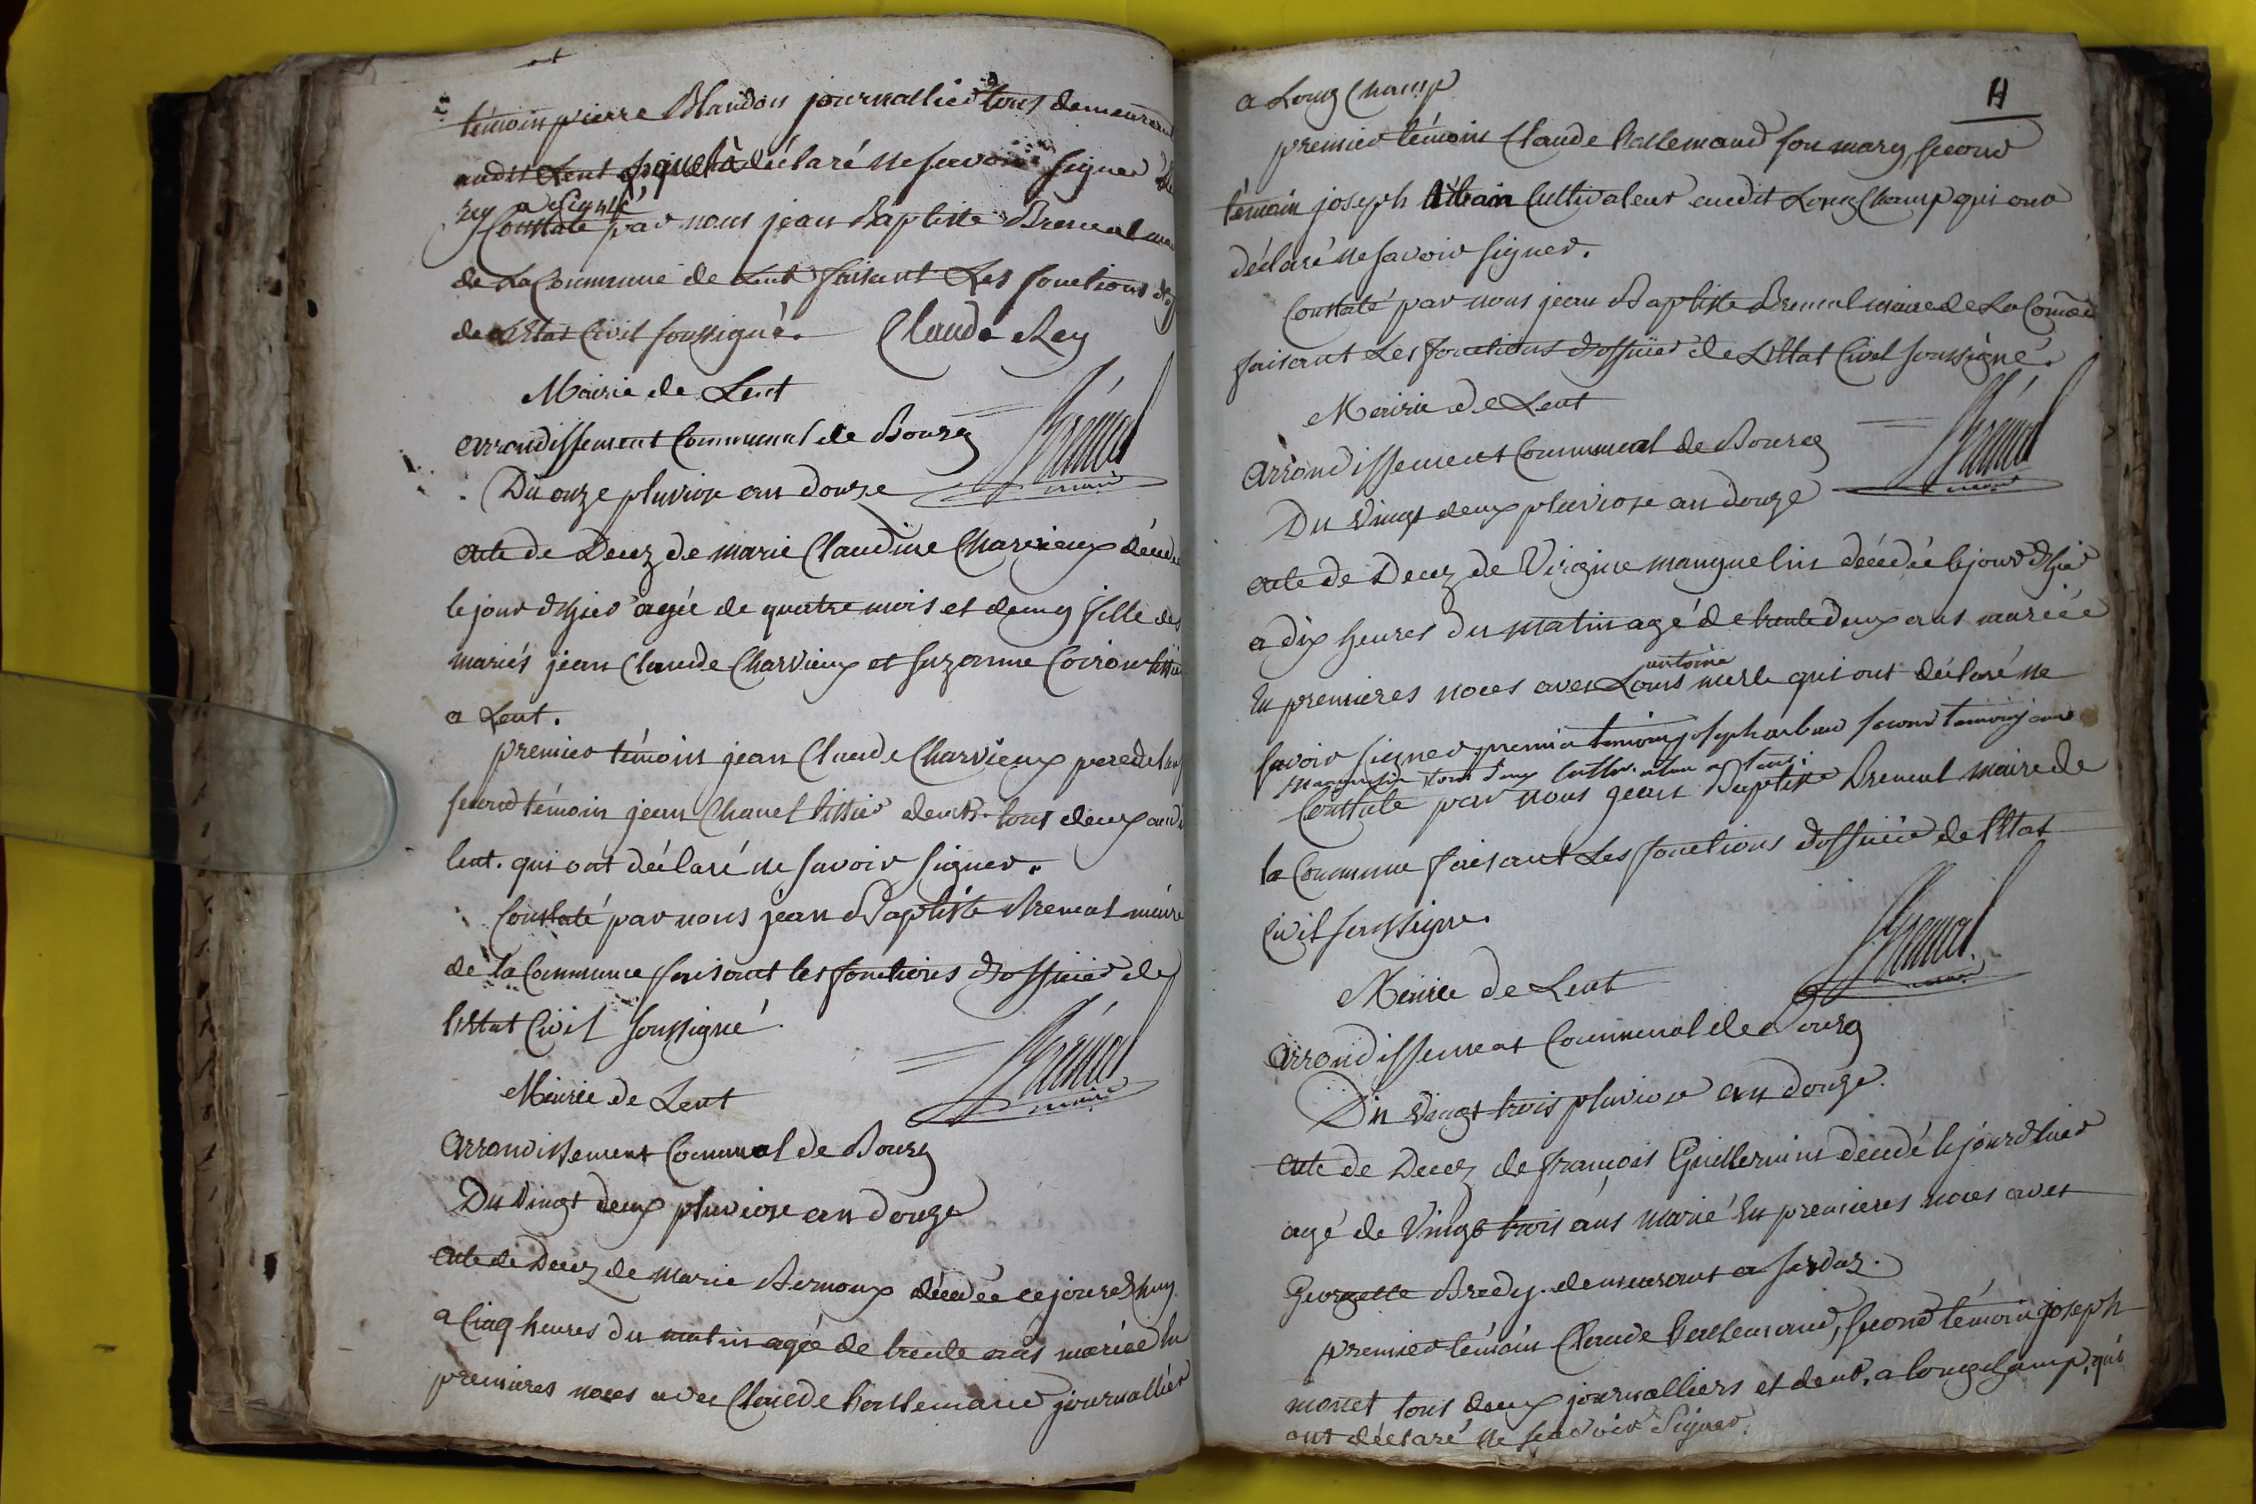 témoin pierre Blandon journallier tous demeurant
audit Lent lequel a déclaré ne savoir signer
rey a signé
Constaté par nous jean Baptiste Brenal
de La Commune de Lent faisant Les fonctions
de LEtat Civil soussigné. Claude Rey
Mairie de Lent
arrondissement Communal de Bourg
Brénal
maire
Du onze pluviose an douze
acte de Decez de marie Claudine Charvieux décédée
le jour d'hier agée de quatre mois et demy fille des
mariés jean Claude Charvieux et Suzanne
a Lent.
premier témoin jean Claude Charvieux pere
second témoin jean Chanel tissier demt. tous deux
lent. qui ont déclaré ne savoir signer.
Constaté par nous jean Baptiste Brenal maire
de la Commune faisant les fonctions d'officier de
l'Etat Civil soussigné
Brénal
maire
Mairie de Lent
arrondissement Communal de Bourg
Du vingt deux pluviose an douze
acte de Decez de marie Bernoux décédée cejourdhuy
a Cinq heures du matin agée de trente ans mariée En
premieres noces avec Claude journallier
H
a Long Champ
premier témoin Claude son mary, second
témoin joseph Cultivateur audit Long Champ qui ont
déclaré ne savoir signer.
Constaté par nous jean Baptiste Brenal maire de La
faisant Les fonctions d'officier de L'Etat Civil soussigné.
Mairie de Lent
Brénal
maire
arrondissement Communal de Bourg
Du vingt deux pluviose an douze
acte de Decez de Virginie manguelin décédée le jour d'hier
a dix heures du matin agé de trente deux ans mariée
antoine
En premieres noces avec Louis merle qui ont déclaré ne
savoir signer premier temoin joseph second temoin
tous deux a Lent
Constaté par nous jean Baptiste Brenal maire de
la Commune faisant Les fonctions d'officier de l'Etat
Civil soussigné.
Brenal
maire
Mairie de Lent
arrondissement Communal de Bourg
Du vingt trois pluviose an douze.
acte de Decez de françois Guillermin décédé le jour d'hier
agé de vingt trois ans marié En premieres noces avec
Georgette Bredy. demeurant a
premier témoin Claude second témoin joseph
monet tous deux journalliers et demt. a longchamp, qui
ont déclaré ne scavoir Signer.